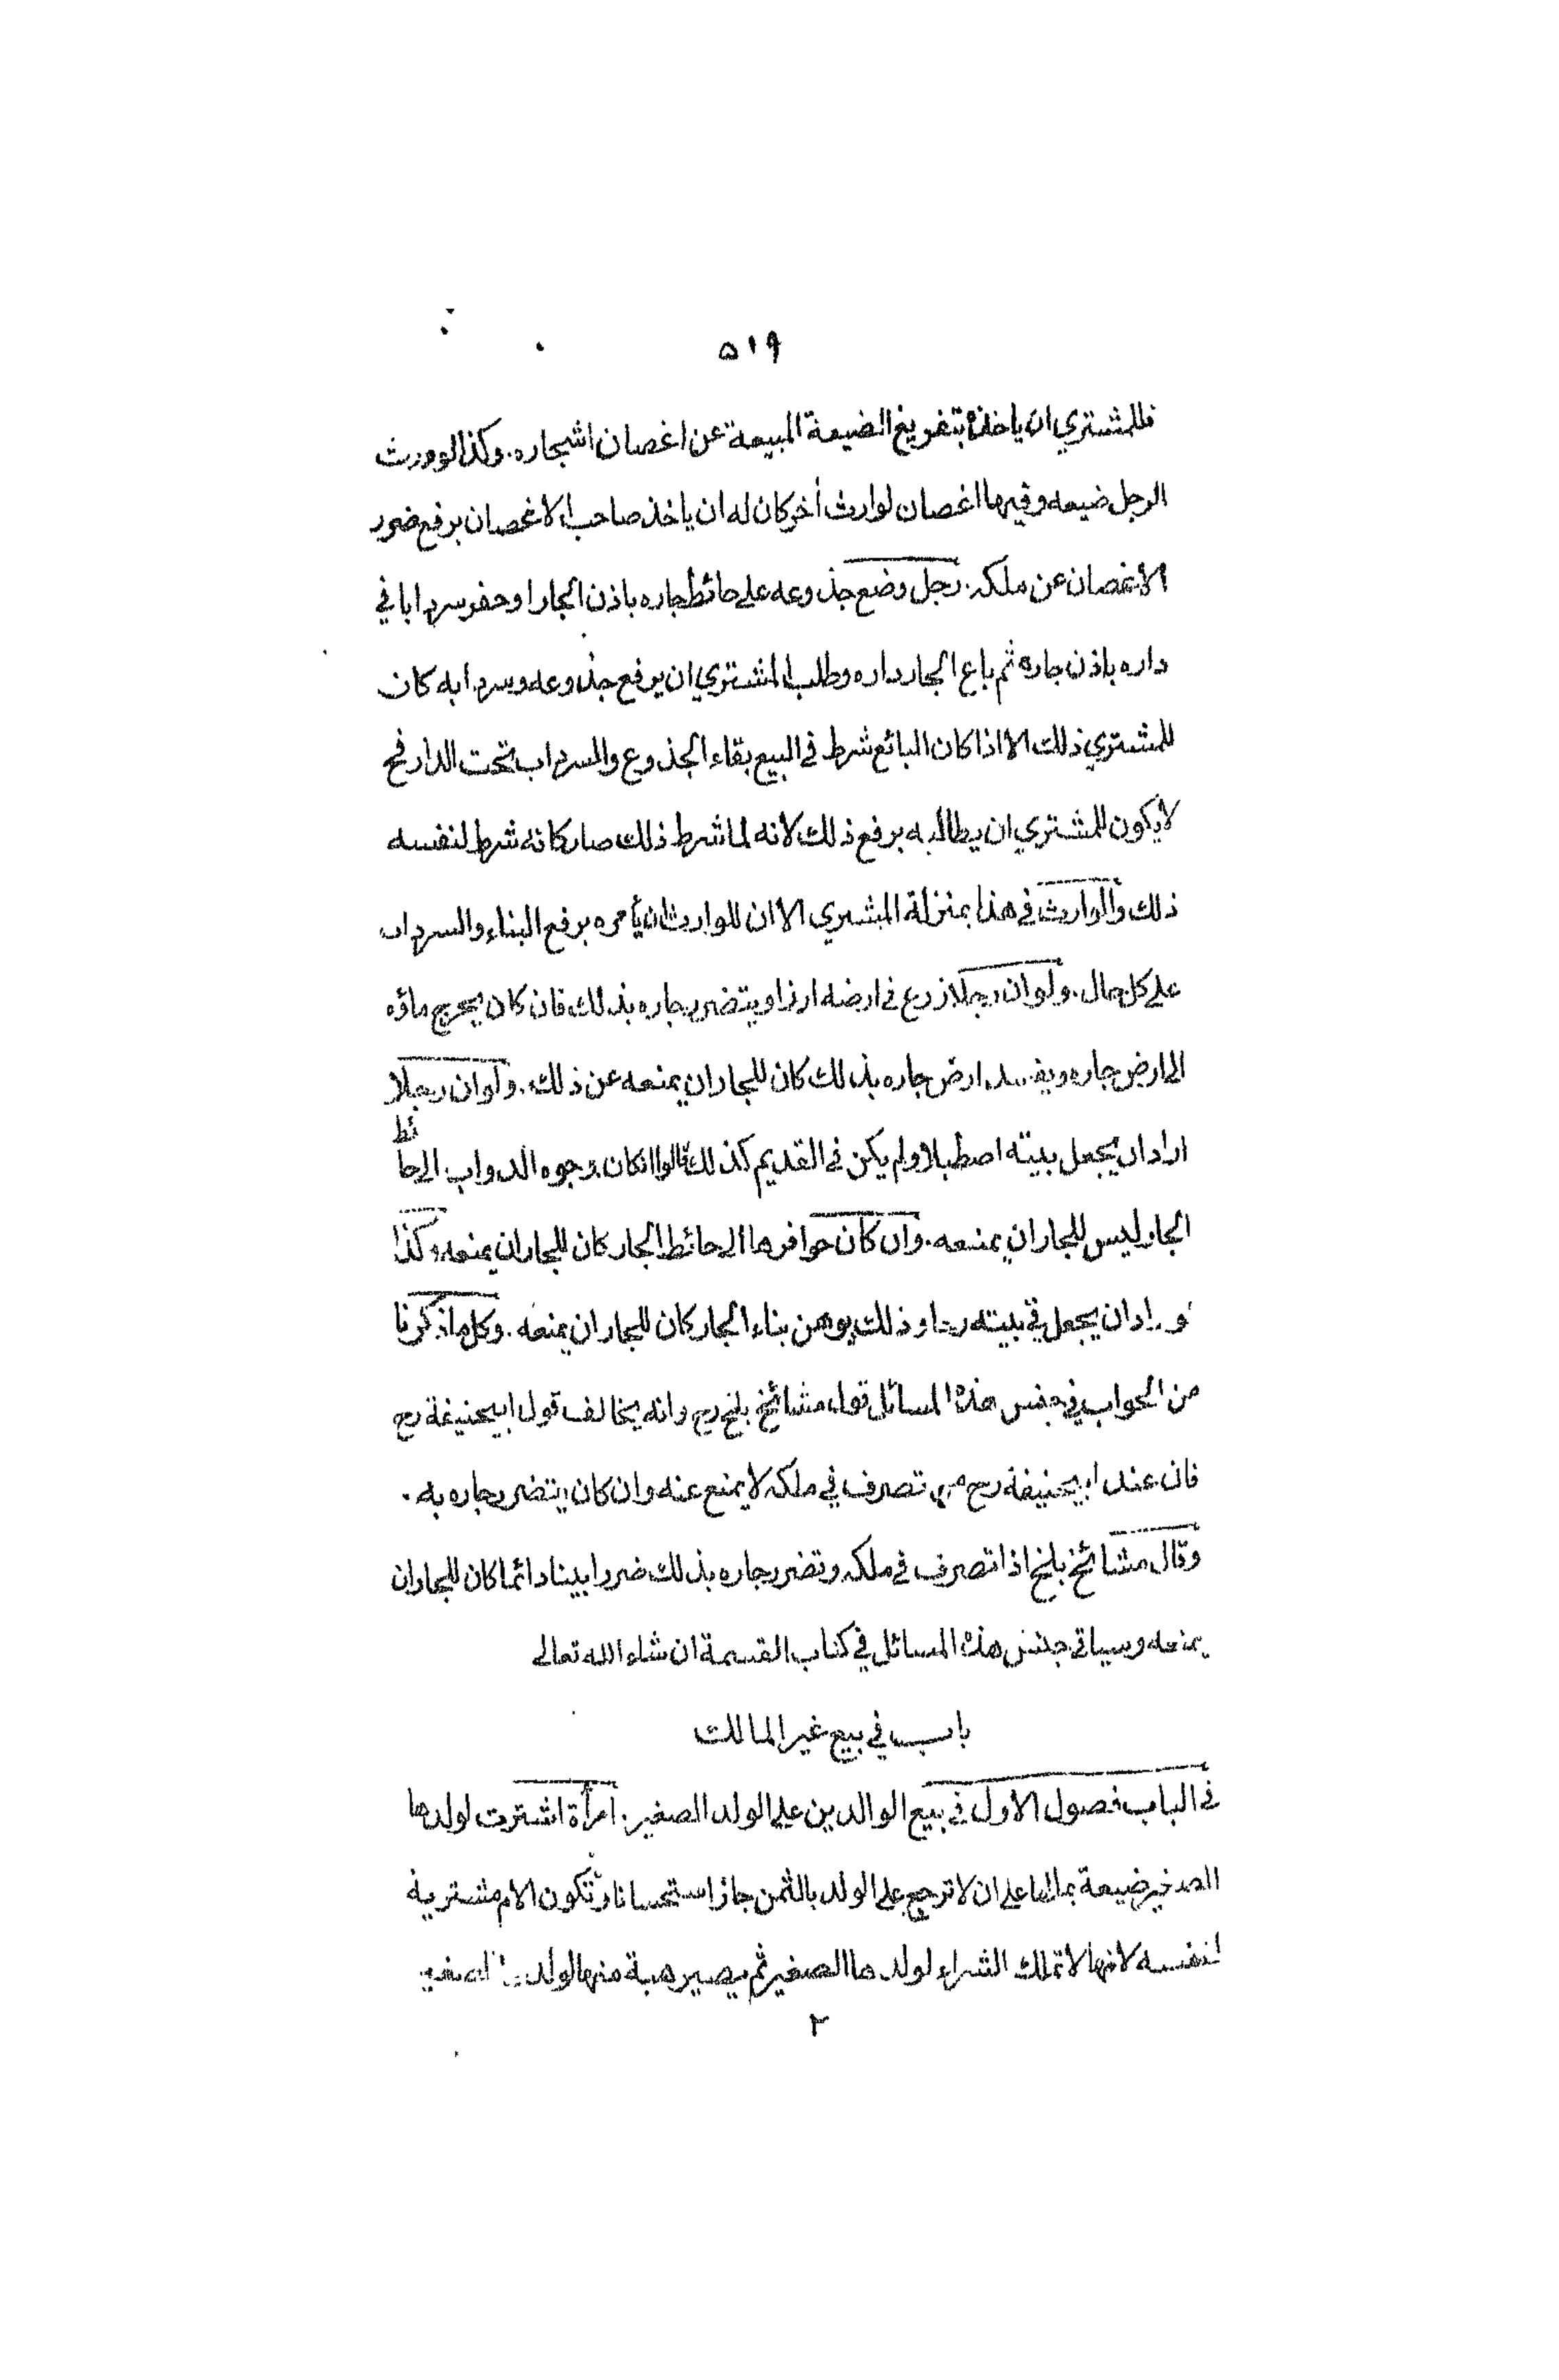 ٥١٩
فللمشتري ان ياخذه بتفريغ الضيعة المبيعة عن اغصان اشجاره. وكذا لو ورث
الرجل ضيعه وفيها اغصان لوارث أخر كان له ان ياخذ صاحب الاغصان برفع ضرر
الاغصان عن ملكه. رجل وضع جذوعه على حائط جاره باذن الجار او حفر سردابا في
داره باذن جاره ثم باع الجار داره وطلب المشتري ان يرفع جذوعه وسردابه كان
للمشتري ذلك الا اذا كان البائع شرط في البيع بقاء الجذوع والسرداب تحت الدار فح
لا يكون للمشتري ان يطالبه برفع ذلك لانه لما شرط ذلك صار كانه شرط لنفسه
ذلك والوارث في هذا بمنزلة المشتري الا ان للوارث ان يأمره برفع البناء والسرداب
على كل حال. ولو ان رجلا زرع في ارضه ارزا ويتضرر جاره بذلك فان كان يخرج ماؤه
الى ارض جاره ويفسد ارض جاره بذلك كان للجار ان يمنعه عن ذلك. ولو ان رجلا
اراد ان يجعل بيته اصطبلا ولم يكن في القديم كذلك قالوا انكان وجوه الدواب الى حائط
الجار ليس للجار ان يمنعه. وان كان حوافرها الى حائط الجار كان للجار ان يمنعه وكذا
لو اراد ان يجعل في بيته رحا وذلك يوهن بناء الجار كان للجار ان يمنعه. وكل ما ذكرنا
من الجواب في جنس هذه المسائل قول مشائخ بلخ رح وانه يخالف قول ابيحنيفة رح
فان عند ابيحنيفة رح من تصرف في ملكه لا يمنع عنه وان كان يتضرر جاره به.
وقال مشائخ بلخ اذا تصرف في ملكه وتضرر جاره بذلك ضررا بينا دائما كان للجار ان
يمنعه وسياتي جنس هذه المسائل في كتاب القسمة ان شاء الله تعالى
باب في بيع غير المالك
في الباب فصول الاول في بيع الوالدين على الولد الصغير. امرأة اشترت لولدها
الصغير ضيعة بمالها على ان لا ترجع على الولد بالثمن جاز استحسانا وتكون الام مشترية
لنفسه لانها لا تملك الشراء لولدها الصغير ثم يصير هبة منها لولدها الصغير
٢